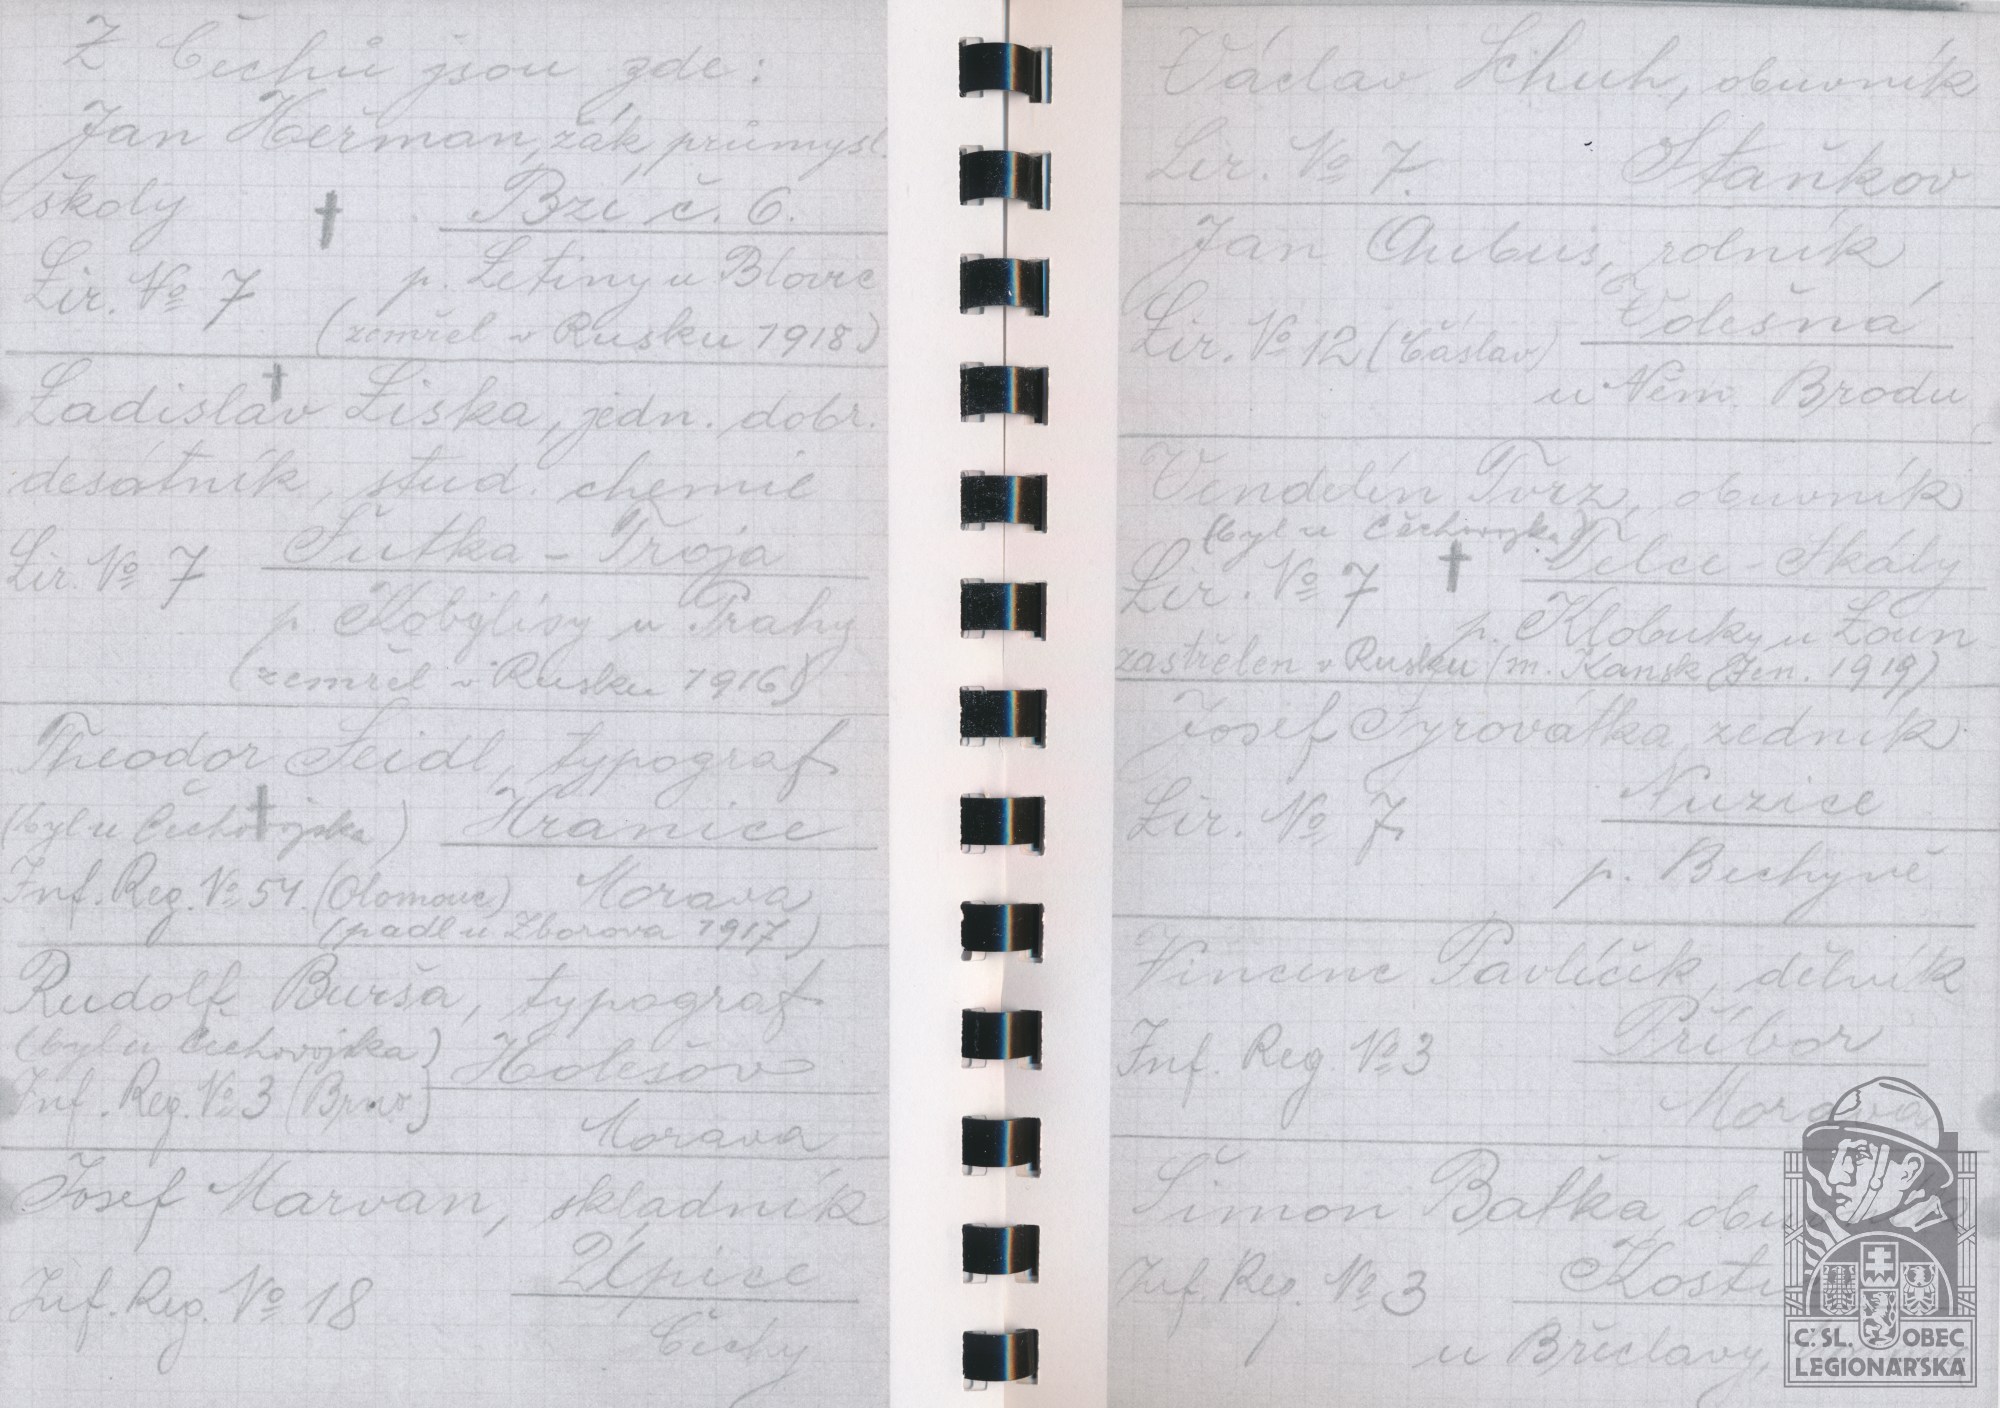 Z Čechů jsou zde:
Jan Heřman, žák průmysl.
školy † Bzí č. 6.
Lir. No 7 p. Letiny u Blovic
(zemřel v Rusku 1918)
†
Ladislav Liska, jedn. dobr.
desátník, stud. chemie
Lir. No 7 Šutka - Troja
p. Kobylisy u Prahy
(zemřel v Rusku 1916)
Theodor Seidl, typograf
(byl u Čechovojska) † Hranice
Inf. Reg. No 54. (Olomouc) Morava
(padl u Zborova 1917)
Rudolf Burša, typograf
(byl u Čechovojska) Holešov
Inf. Reg. No 3 (Brno) Morava
Josef Marvan, skladník
Inf. Reg. No 18 Úpice
Čechy
Václav Schuh, obuvník
Lir. No 7. Staňkov
Jan Aubus, rolník
Lir. No 12 (Čáslav) Volešná
u Něm. Brodu
Vendelín Tvrz, obuvník
(byl u Čechovojska)
Lir. No 7 † Telce - Skály
p. Klobuky u Loun
zastřelen v Rusku (m. Kansk Jen. 1919)
Josef Syrovátka, zedník
Lir. No 7 Nuzice
p. Bechyně
Vincenc Pavlíčik, dělník
Inf. Reg. No 3 Příbor
Morava
Šimon Baťka,
Inf. Reg. No 3
u Břeclavy,
Č. SL. OBEC
LEGIONÁŘSKÁ